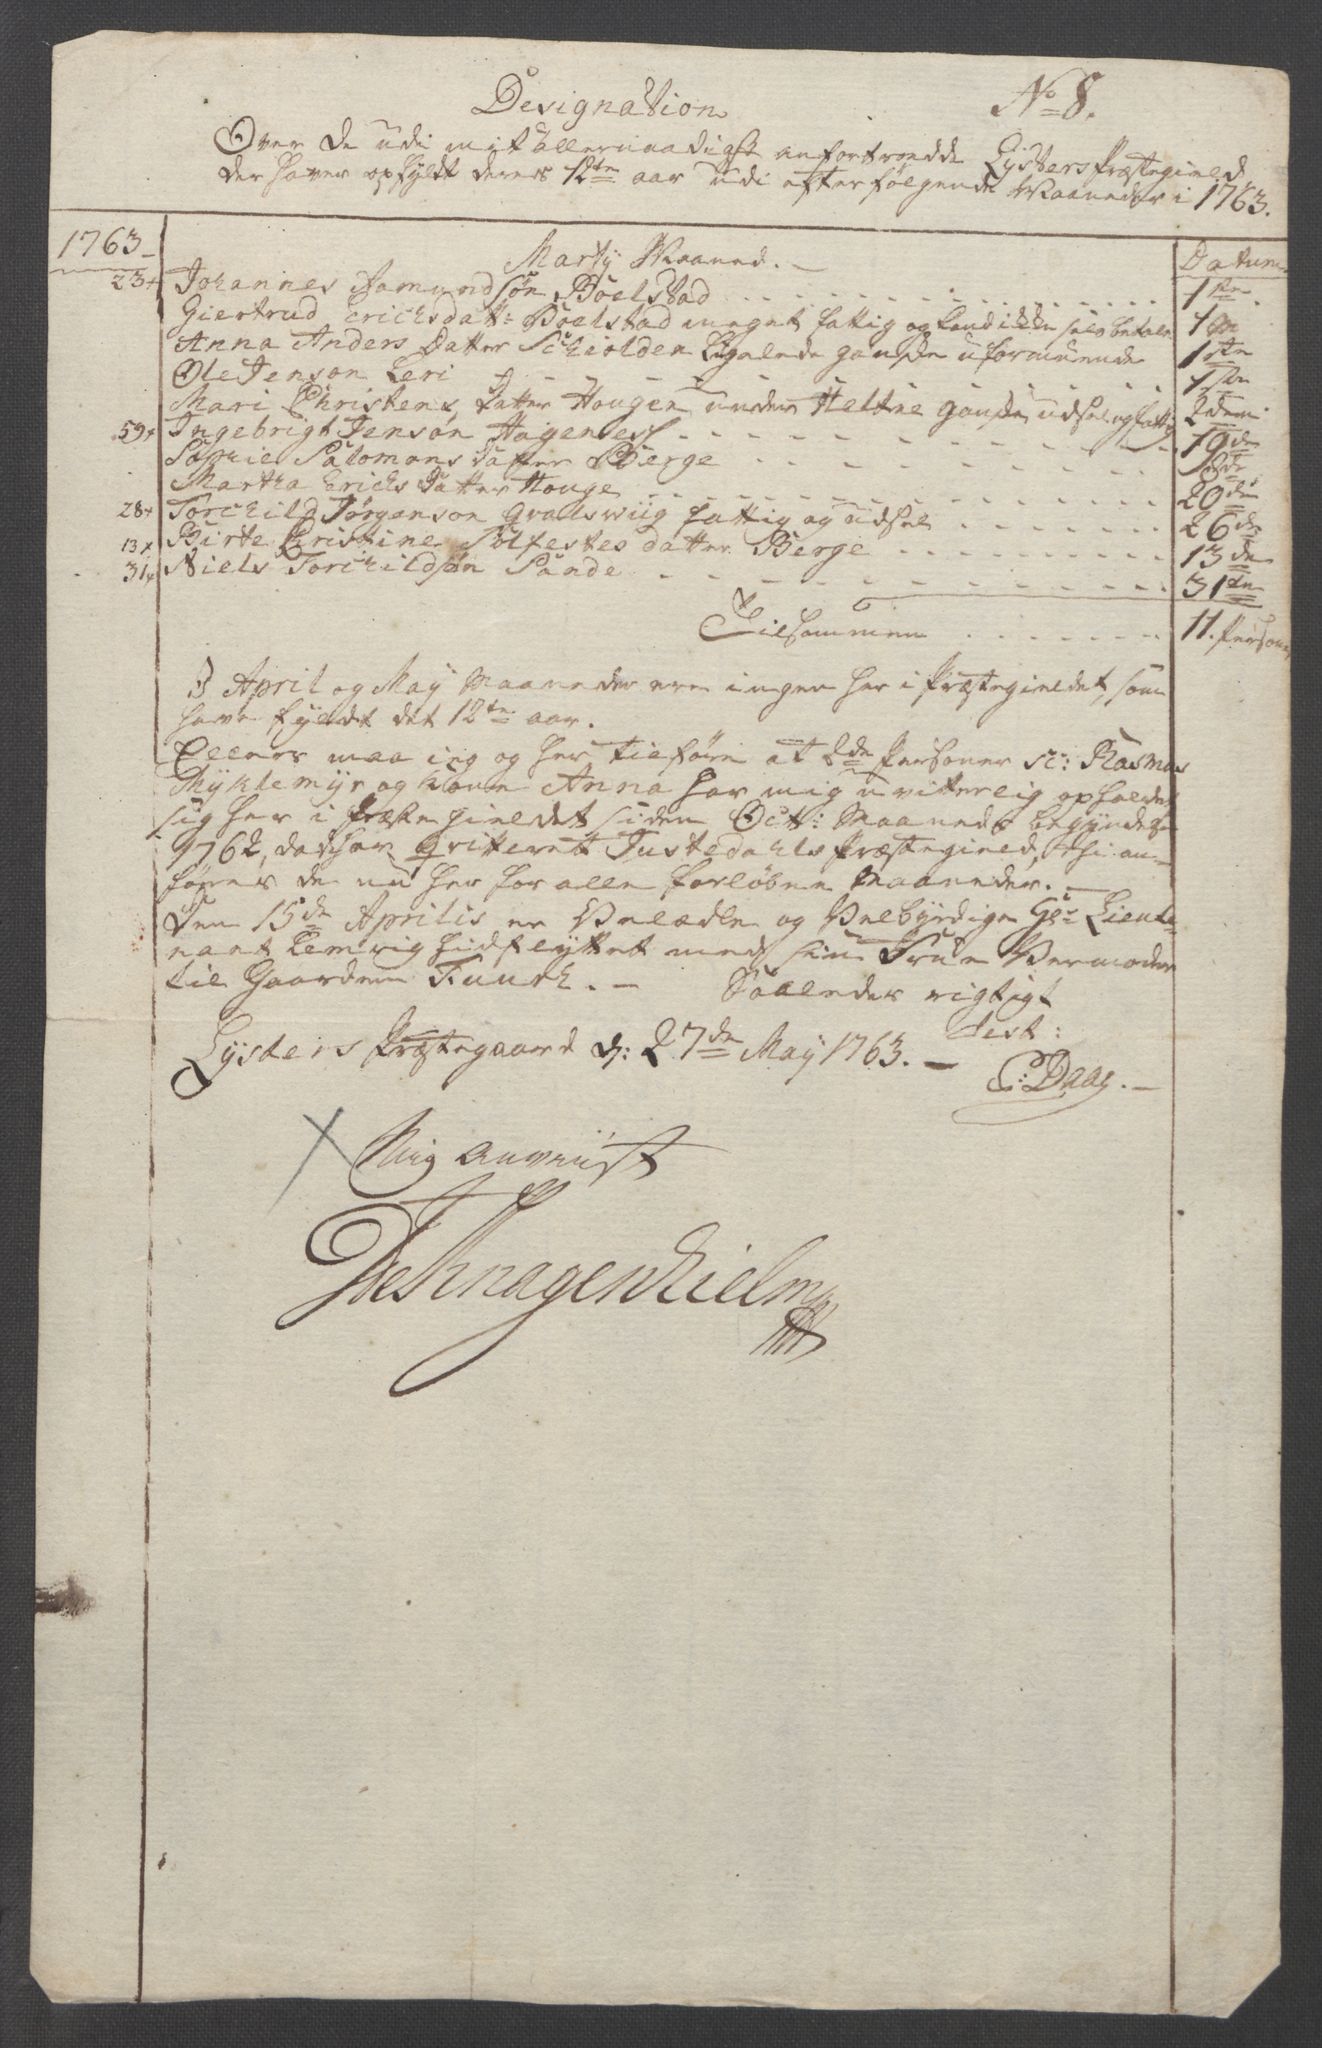 Designation No 8.
Over de udi mit allernaadigst anfortroedde Lysters Præstegield,
der haver opfyldt deres 12te aar udi efterfølgende Maaneder i 1763.
1763 Datum
Marty Maaned.
23+ Johannes Aamundsøn Bolstad . . . 1ste
Giertrud Erichsdatt: Bolstad meget fattig og kand ikke selv betale 1ste
Anna Anders Datter Schiolden ligeleds gandske uformuende 1ste
Ole Jenson Leri . . . 1ste
Mari Christens Datter Hougen under gandske udsel og fattig 2den
59+ Ingebrigt Jensøn Hagenes . . . 19de
Sophie Salomons Datter Berge . . . 8de
Martha Erichs Datter Houge . . . 20de
28+ Torchild Jørgenson fattig og udsel . . . 26de
13+ Birte Christine Datter Berge . . . 13de
31+ Niels Torchildsøn Sande . . . 31te
Tilsammen . . . 11. Persone
I April og May Maaneder ere ingen her i Præstegieldet, som
have fyldt det 12te aar.
Ellers maa ieg og her tilføre at 2de Persone sc: Rasmus
Myklemyr og kone Anna har mig uvitterlig opholdet
sig her i Præstegieldet siden Oct: Maaneds begyndelse
1762, da de har qvitteret Justedahls Præstegield, thi an-
føres de nu her for alle forløbne Maaneder.
Den 15de Aprilis er Velædle og Velbyrdige Hr: Lieute-
nant Lemvig hidflyttet med sin Frue Vermoder
til Gaarden . Saaledes rigtigt
test:
Lysters Præstegaard d: 27de May 1763. C: Daae.
Mig anviist
De Knagenhielm